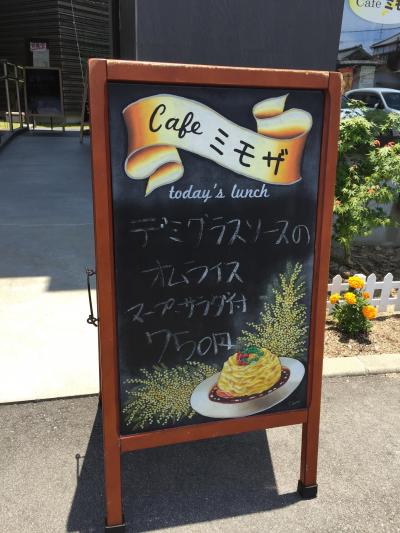 Cafe ミモザ
Cafe ミモザ
today's lunch
デミグラスソースの
オムライス
スープ・サラダ付
750円